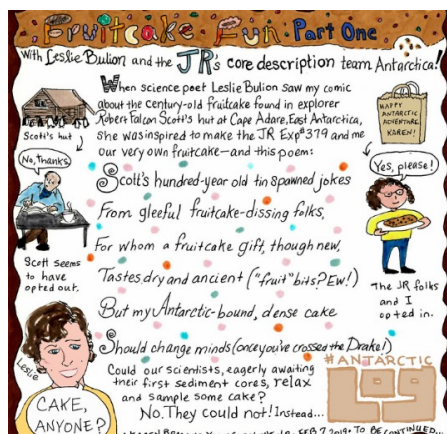 Fruitcake Fun Part One
With Leslie Bulion and the JR's core description team Antarctica!
When science poet Leslie Bulion saw my comic
about the century-old fruitcake found in explorer
Robert Falcon Scott's hut at Cape Adare, East Antarctica,
she was inspired to make the JR Exp#379 and me
our very own fruitcake—and this poem:
Scott's hut
HAPPY
ANTARCTIC
ADVENTURE,
KAREN!
No, thanks
Yes, please!
Scott's hundred-year old tin spawned jokes
From gleeful fruitcake-dissing folks,
For whom a fruitcake gift, though new,
Tastes dry and ancient ("fruit" bits? Ew!)
But my Antarctic-bound, dense cake
Should change minds (once you've crossed the Drake!)
Scott seems
to have
opted out.
The JR folks
and I
opted in.
Leslie
CAKE,
ANYONE?
Could our scientists, eagerly awaiting
their first sediment cores, relax
and sample some cake?
No. They could not! Instead...
#ANTARCTIC
LOG
FEB 7 2019 • TO BE CONTINUED...